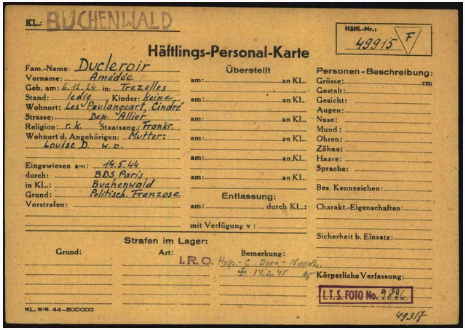 KL.: BUCHENWALD
Häftl.-Nr.:
49915 F
Häftlings-Personal-Karte
Fam.-Name: Ducleroir
Vorname: Amédée
Geb. am: 6.12.24 in: Trezelles
Stand: ledig Kinder: keine
Wohnort: Les Poulangeart, Cindré
Strasse: Dep. Allier
Religion: r.k. Staatsang. Frankr.
Wohnort d. Angehörigen: Mutter:
Louise D. w.o.
Eingewiesen am: 14.5.44
durch: BDS, Paris
in KL.: Buchenwald
Grund: Politisch. Franzose
Vorstrafen:
Überstellt
am: an KL.
am: an KL.
am: an KL.
am: an KL.
am: an KL.
am: an KL.
Entlassung:
am: durch KL.:
mit Verfügung v.:
Personen-Beschreibung:
Grösse: cm
Gestalt:
Gesicht:
Augen:
Nase:
Mund:
Ohren:
Zähne:
Haare:
Sprache:
Bes. Kennzeichen:
Charakt.-Eigenschaften:
Sicherheit b. Einsatz:
Körperliche Verfassung:
Strafen im Lager:
Grund: Art: Bemerkung:
I.R.O. Dora-
I.T.S. FOTO No. 9896
49317
KL. 5-6. 44-500000